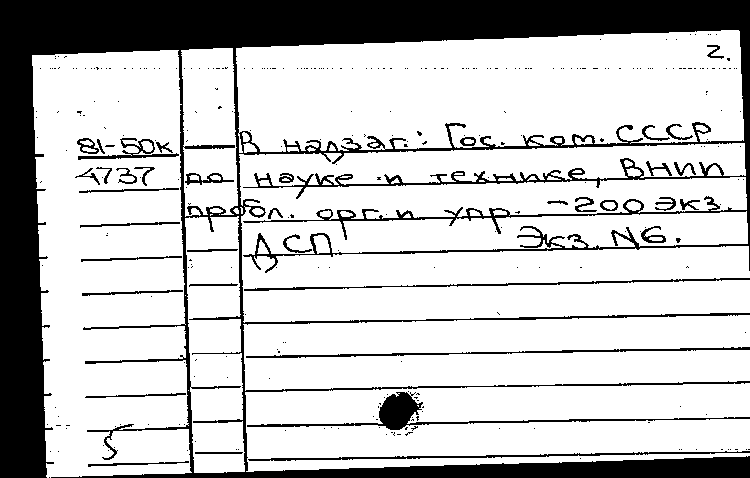 2.
81-50к В надзаг.: Гос. ком. СССР
4737 по науке и технике, ВНИИ
пробл. орг. и упр. -200 экз.
ДСП Экз. N6.
5